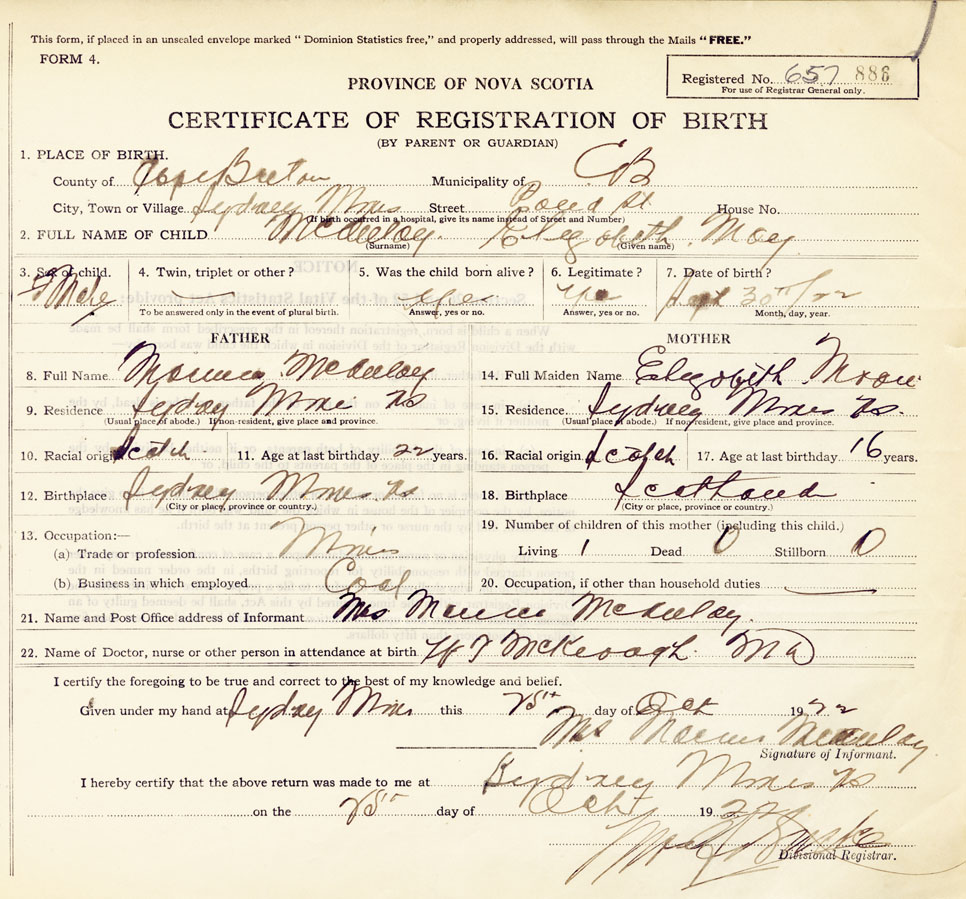 This form, if placed in an unsealed envelope marked “Dominion Statistics free,” and properly addressed, will pass through the Mails “FREE.”
FORM 4.
Registered No. 657 886
For use of Registrar General only.
PROVINCE OF NOVA SCOTIA
CERTIFICATE OF REGISTRATION OF BIRTH
(BY PARENT OR GUARDIAN)
1. PLACE OF BIRTH.
County of Cape Breton Municipality of CB
City, Town or Village Sydney Mines Street Pond St House No.
(If birth occurred in a hospital, give its name instead of Street and Number)
2. FULL NAME OF CHILD McAulay Elizabeth May
(Surname) (Given name)
3. Sex of child. 4. Twin, triplet or other? 5. Was the child born alive? 6. Legitimate? 7. Date of birth?
yes yes Sept 30th/22
To be answered only in the event of plural birth. Answer, yes or no. Answer, yes or no. Month, day, year.
FATHER MOTHER
8. Full Name McAulay 14. Full Maiden Name Elizabeth
9. Residence Sydney Mines Ns 15. Residence Sydney Mines Ns.
(Usual place of abode.) If non-resident, give place and province. (Usual place of abode.) If non-resident, give place and province.
10. Racial origin Scotch 11. Age at last birthday 22 years. 16. Racial origin Scotch 17. Age at last birthday 16 years.
12. Birthplace Sydney Mines Ns 18. Birthplace Scotland
(City or place, province or country.) (City or place, province or country.)
13. Occupation:— 19. Number of children of this mother (including this child.)
(a) Trade or profession Living 1 Dead 0 Stillborn 0
(b) Business in which employed Coal 20. Occupation, if other than household duties
21. Name and Post Office address of Informant Mrs McAulay.
22. Name of Doctor, nurse or other person in attendance at birth McKeough. MD
I certify the foregoing to be true and correct to the best of my knowledge and belief.
Given under my hand at Sydney Mines this 25th day of Oct 1922
Mrs McAulay
Signature of Informant.
I hereby certify that the above return was made to me at Sydney Mines Ns
on the 25th day of Oct 1922
Divisional Registrar.